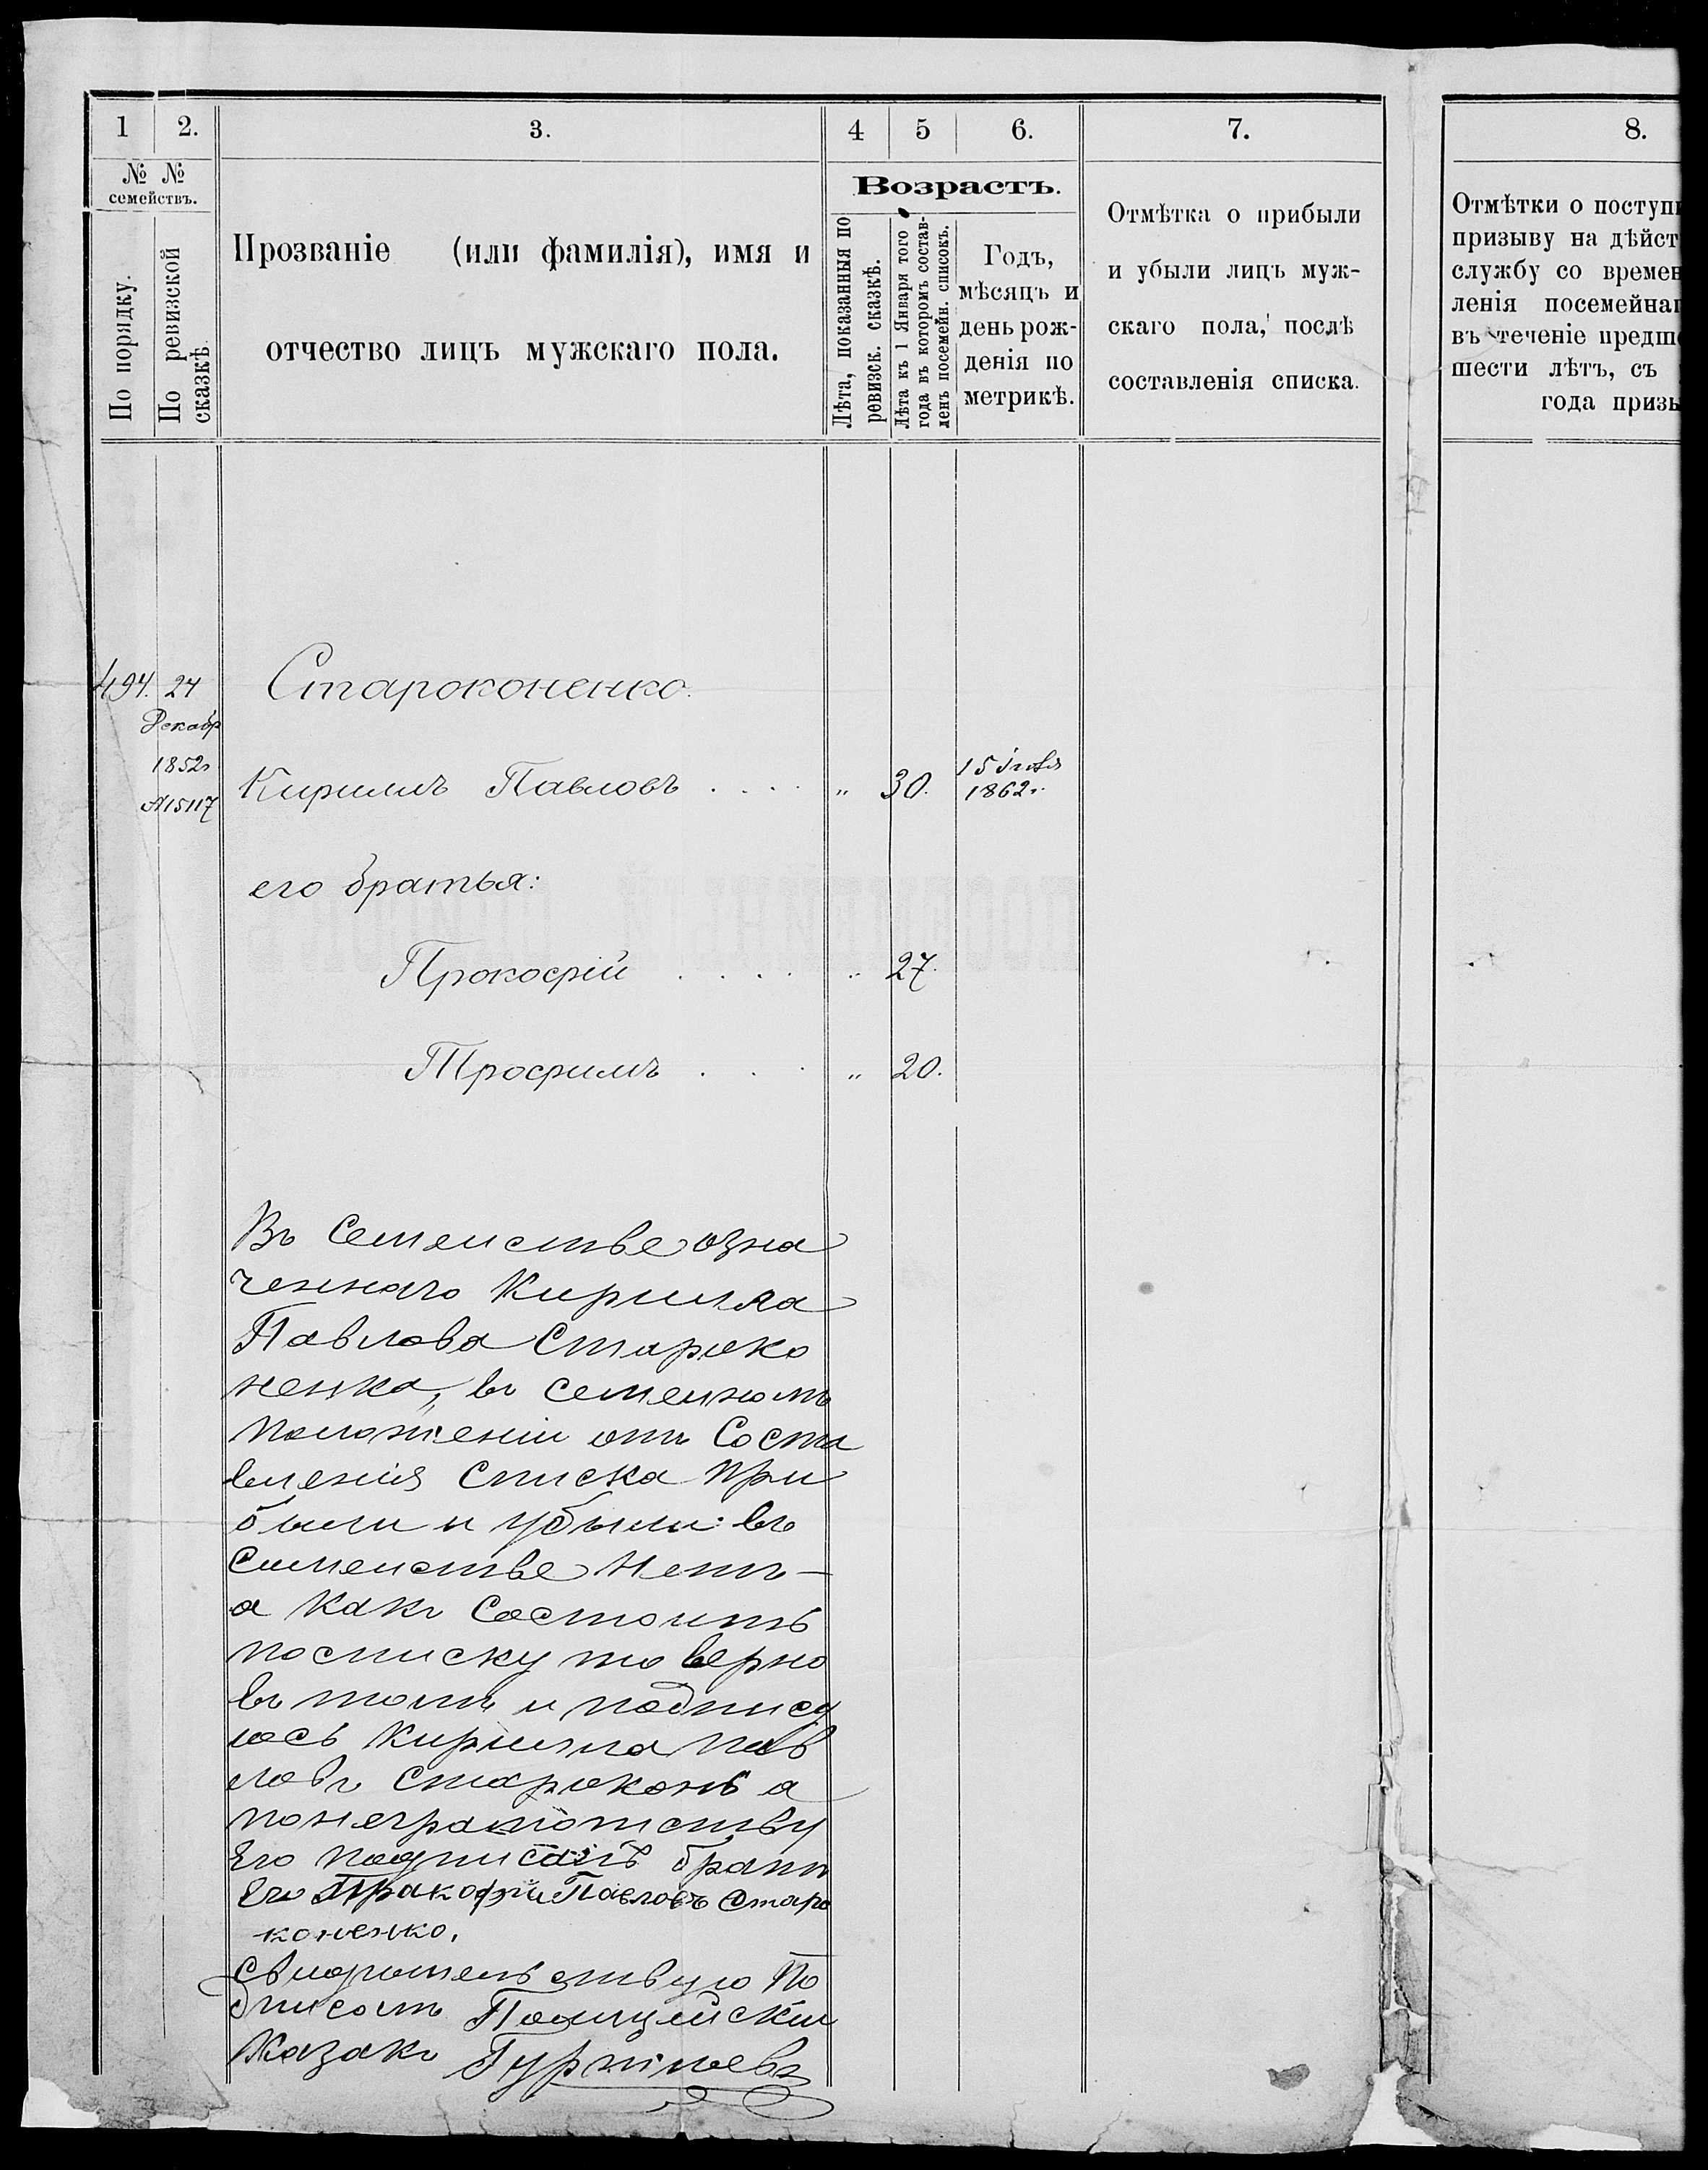 1 2. 3. 4 5 6. 7. 8.
№ №
семействъ.
По порядку.
По ревизской
сказкѣ.
Прозваніе (или фамилія), имя и
отчество лицъ мужскаго пола.
Возрастъ.
Лѣта, показанныя по
ревизск. сказкѣ.
Лѣта къ 1 Января того
года въ которомъ состав-
ленъ посемейн. списокъ.
Годъ,
мѣсяцъ и
день рож-
денія по
метрикѣ.
Отмѣтка о прибыли
и убыли лицъ муж-
скаго пола, послѣ
составленія списка.
Отмѣтки о поступ
призыву на дѣйст
службу со времен
ленія посемейнаг
въ теченіе предше
шести лѣтъ, съ
года призы
494. 24 Староконенко.
Декабр
1852
№15117
Кириллъ Павловъ . . . . „ 30. 15
1862 г.
его братья:
Прокофій . . . . „ 27.
Трофимъ . . . „ 20.
Въ Семействе озна
ченнаго Кирилла
Павлова Староко
ненка, въ семейномъ
положеніи отъ Соста
вленія Списка при
были и убыли въ
Семействе Нетъ —
а какъ Состоитъ
посписку то верно
въ томъ и подпису
юсь Кирилла Пав
ловъ Стараконь а
понеграмотству
Его подписалъ братъ
Его Пракофий Павловъ Старо
коненко.
Свидетельствую По
дписомъ Полицейский
Казакъ